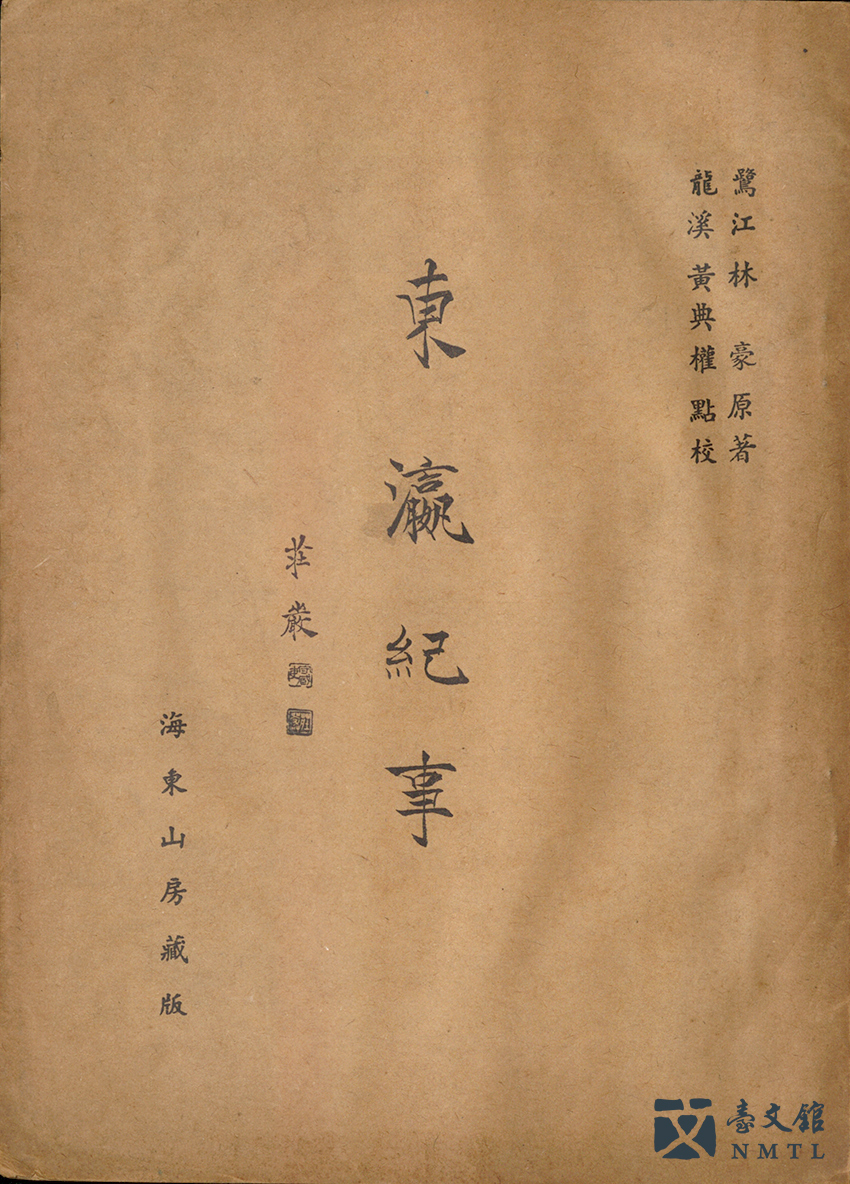 鷺江林豪原著
龍溪黃典權點校
東瀛紀事
莊嚴
海東山房藏版
臺文館
NMTL